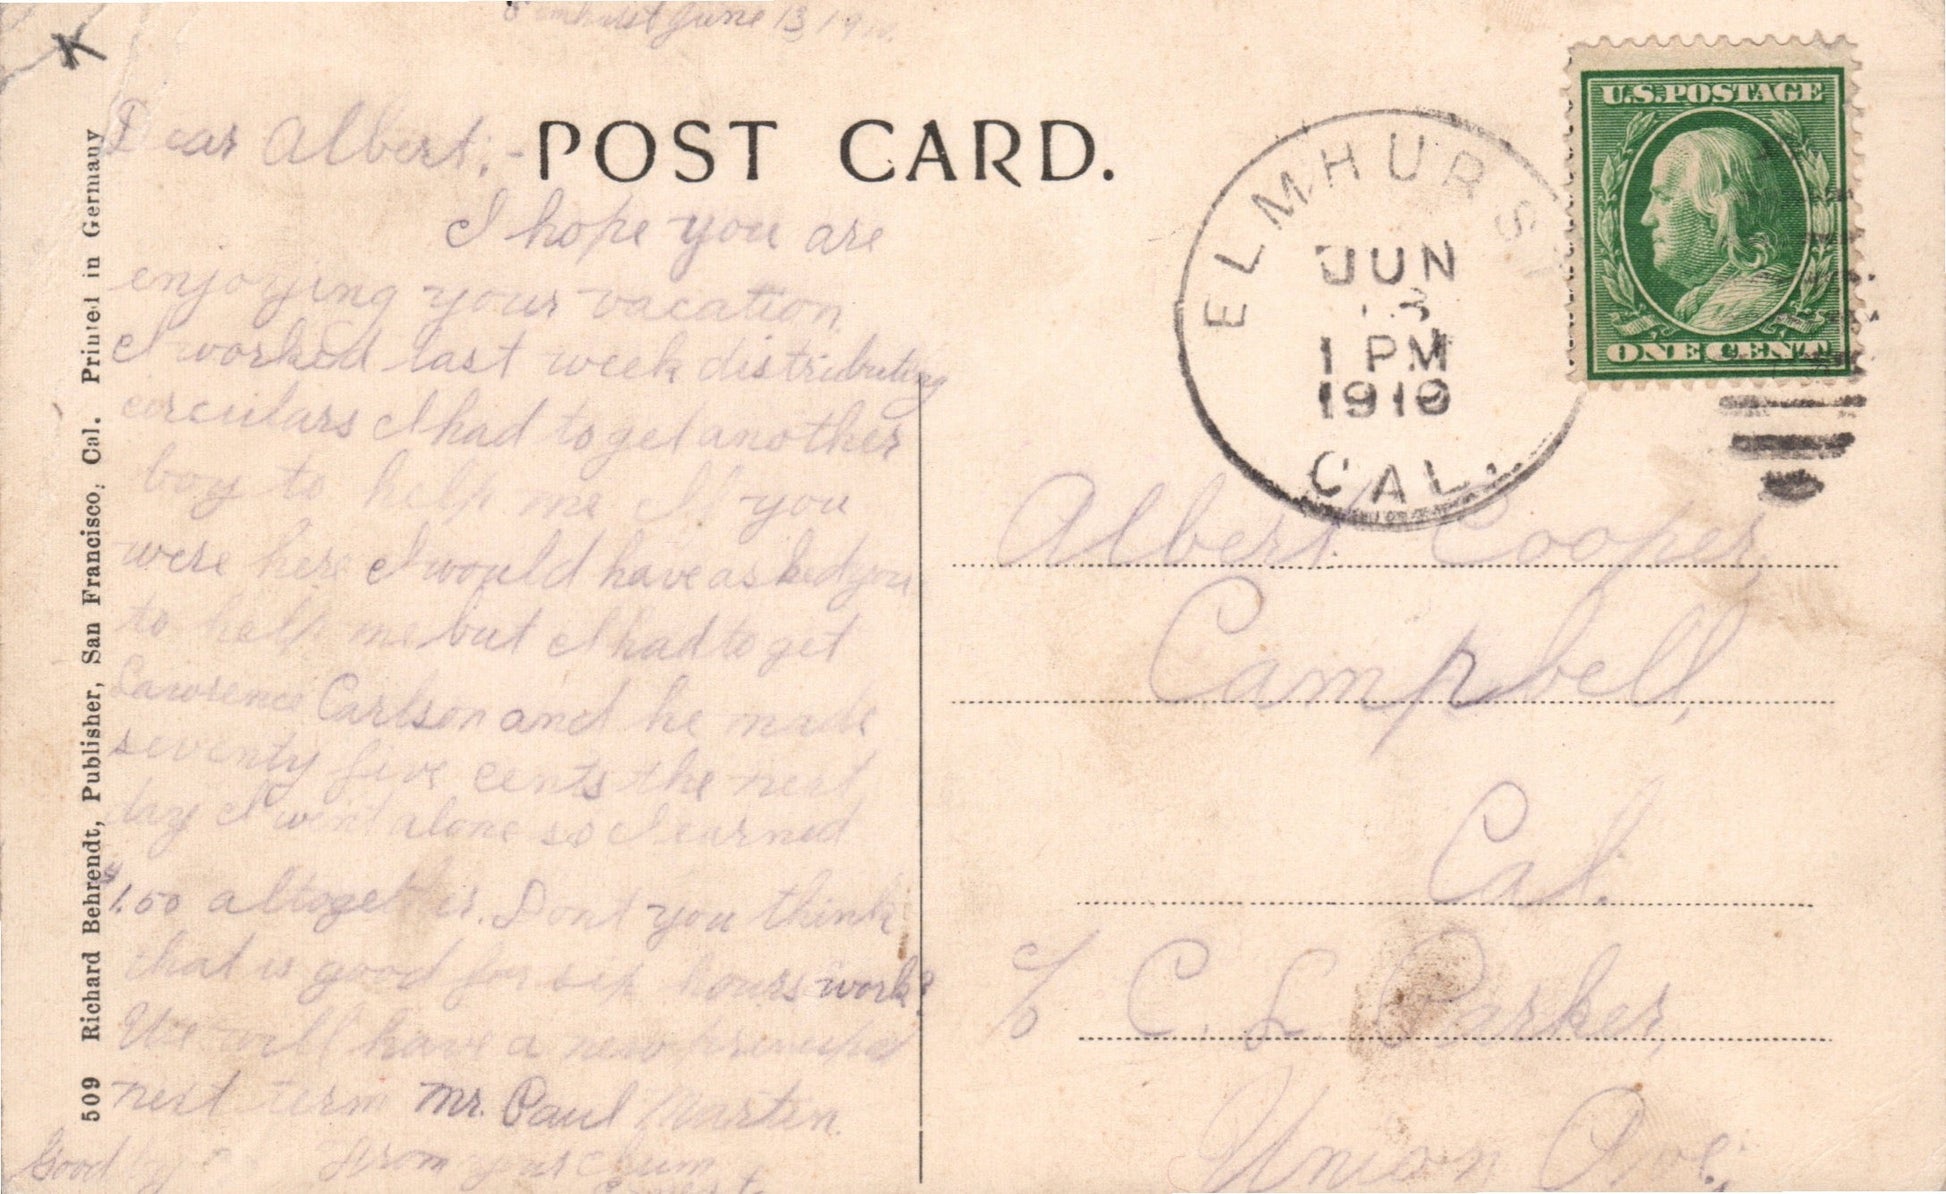 Elmhurst June 13, 1910.
POST CARD.
Dear Albert;-
I hope you are
enjoying your vacation
I worked last week distributing
circulars I had to get another
boy to help me If you
were here I would have asked you
to help me but I had to get
Lawrence Carlson and he made
seventy five cents the next
day I went alone so I earned
$1.50 altogether. Dont you think
that is good for six hours work?
We will have a new principal
next term Mr. Paul Martin.
Good by From your chum
Ernest
509 Richard Behrendt, Publisher, San Francisco, Cal. Printed in Germany
ELMHURST
JUN
13
1 PM
1910
CAL.
U.S. POSTAGE
ONE CENT
Albert Cooper,
Campbell,
Cal.
c/o C. L. Parker,
Union Ave.